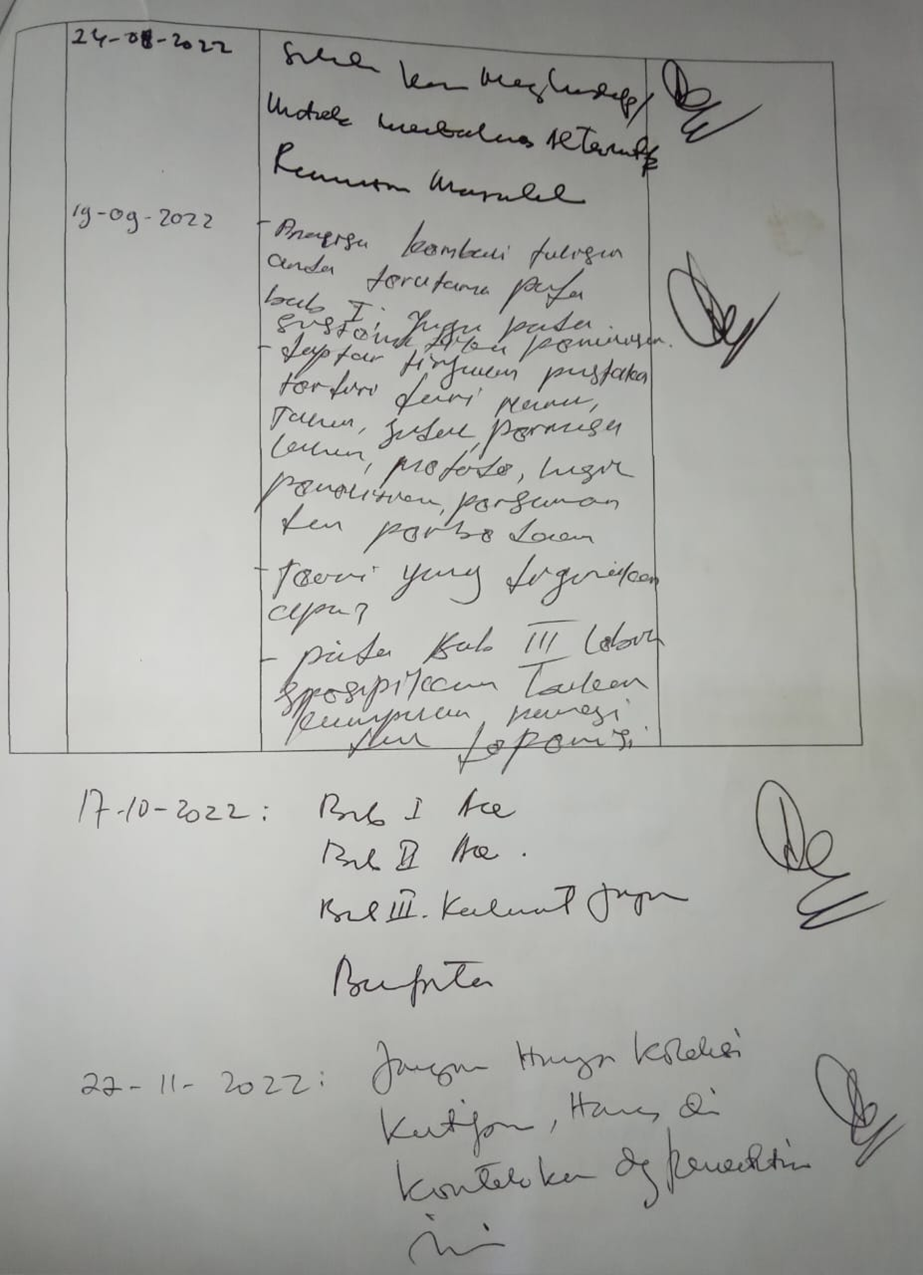 24-08-2022
Silahkan menghadap
Untuk membahas Alternatif
Rumusan Masalah
19-09-2022
- kembali tulisan
anda terutama pada
bab I, juga pada
penulisan.
- daftar tinjauan pustaka
terdiri dari nama,
Tahun, judul, permasa
lahan, metode, hasil
penelitian, persamaan
dan perbedaan
- Teori yang digunakan
apa?
- pada Bab III lebih
dan
17-10-2022 : Bab I Acc
Bab II Acc .
Bab III. Kalimat jangan
22-11-2022 : Jangan Hanya koleksi
Kutipan, Harus di
kontekskan dg penelitian
ini